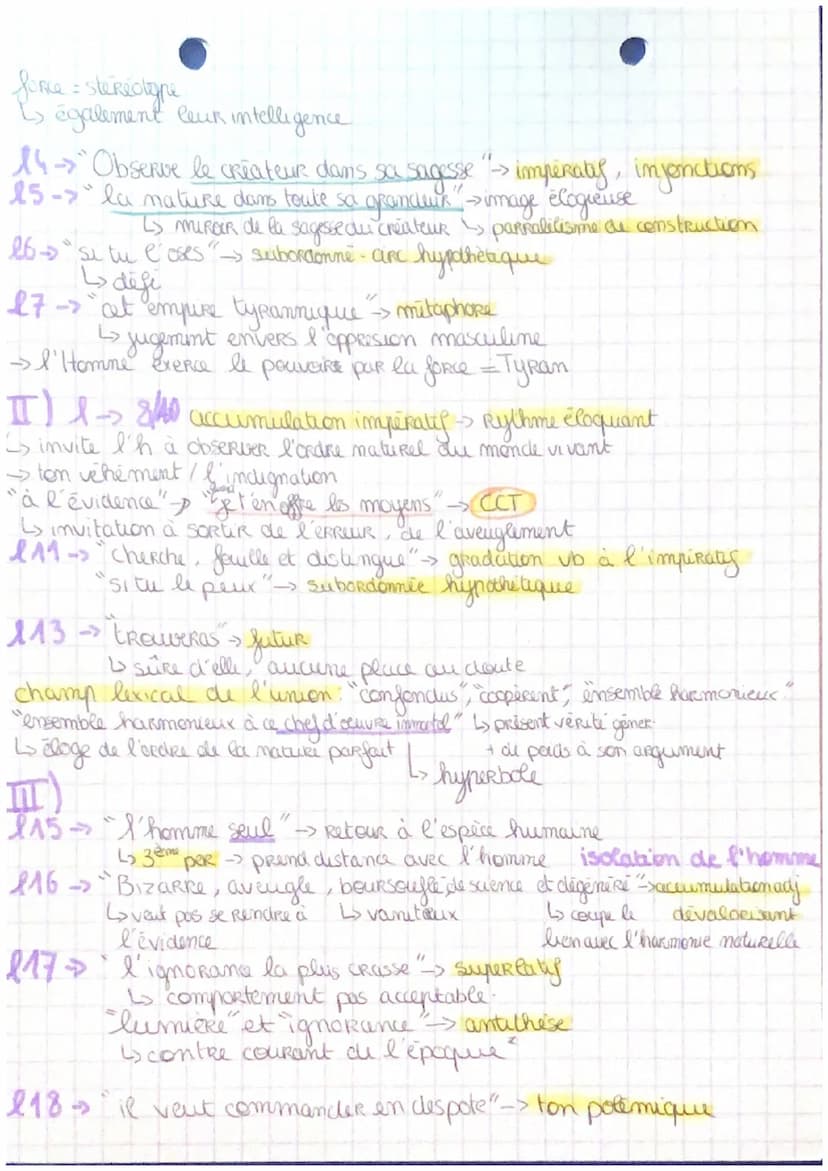 force = stéréotype
↳ également leur intelligence
l4 → "Observe le créateur dans sa sagesse" → impératif, injonctions
l5 → "la nature dans toute sa grandeur" → image élogieuse
↳ miroir de la sagesse du créateur ↳ parralélisme de construction
l6 → "si tu l'oses" → subordonné - circ hypothétique
↳ défi
l7 → "cet empire tyrannique" → métaphore
↳ jugement envers l'oppresion masculine
→ l'Homme exerce le pouvoir par la force = Tyran
II) l → 8/10 accumulation impératif → Rythme éloquant
↳ invite l'h à observer l'ordre naturel du monde vivant
→ ton véhément / l'indignation
"à l'évidence" → "quand je t'en offre les moyens" → CCT
↳ invitation à sortir de l'erreur, de l'aveuglement
l11 → "cherche, fouille et distingue" → gradation vb à l'impératif
"si tu le peux" → subordonnée hypothétique
l13 → "trouveras" → futur
↳ sûre d'elle, aucune place au doute
champ lexical de l'union: "confondus", "coopèrent", "ensemble harmonieux"
"ensemble harmonieux à ce chef d'oeuvre immortel" ↳ présent vérité géner.
↳ éloge de l'ordre de la nature parfait + de poids à son argument
↳ hyperbole
III)
l15 → "l'homme seul" → Retour à l'espèce humaine
↳ 3ème per → prend distance avec l'homme isolation de l'homme
l16 → "Bizarre, aveugle, boursouflé de science et dégénéré" → accumulation adj
↳ veut pas se rendre à ↳ vaniteux ↳ coupe le dévalorisant
l'évidence lien avec l'harmonie naturelle
l17 → "l'ignorance la plus crasse" → superlatif
↳ comportement pas acceptable.
"lumière" et "ignorance" → antithèse
↳ contre courant de l'époque
l18 → "il veut commander en despote" → ton polémique